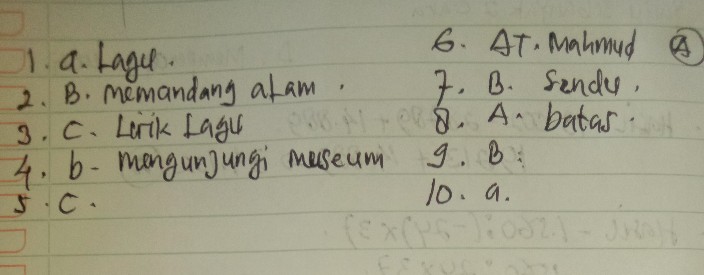 1. a. Lagu.
2. B. memandang alam.
3. C. Lirik Lagu
4. b - mengunjungi museum
5. C.
6. AT. Mahmud (A)
7. B. Sendu.
8. A. batas.
9. B.
10. a.